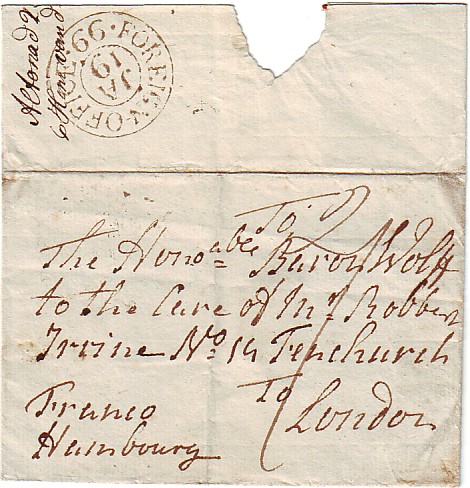 Altonad 2
FOREIGN·OFFICE·99·
JA
19
To
The Honoable Baron Wolff
to the Care of Mr Robbert
Irvine No 14 Fenchurch
To
London
Franco
Hambourg